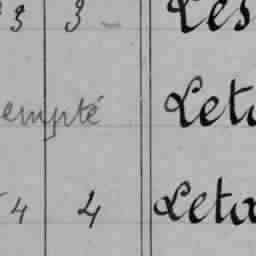 3 3 Les
empté Leta
4 4 Leta